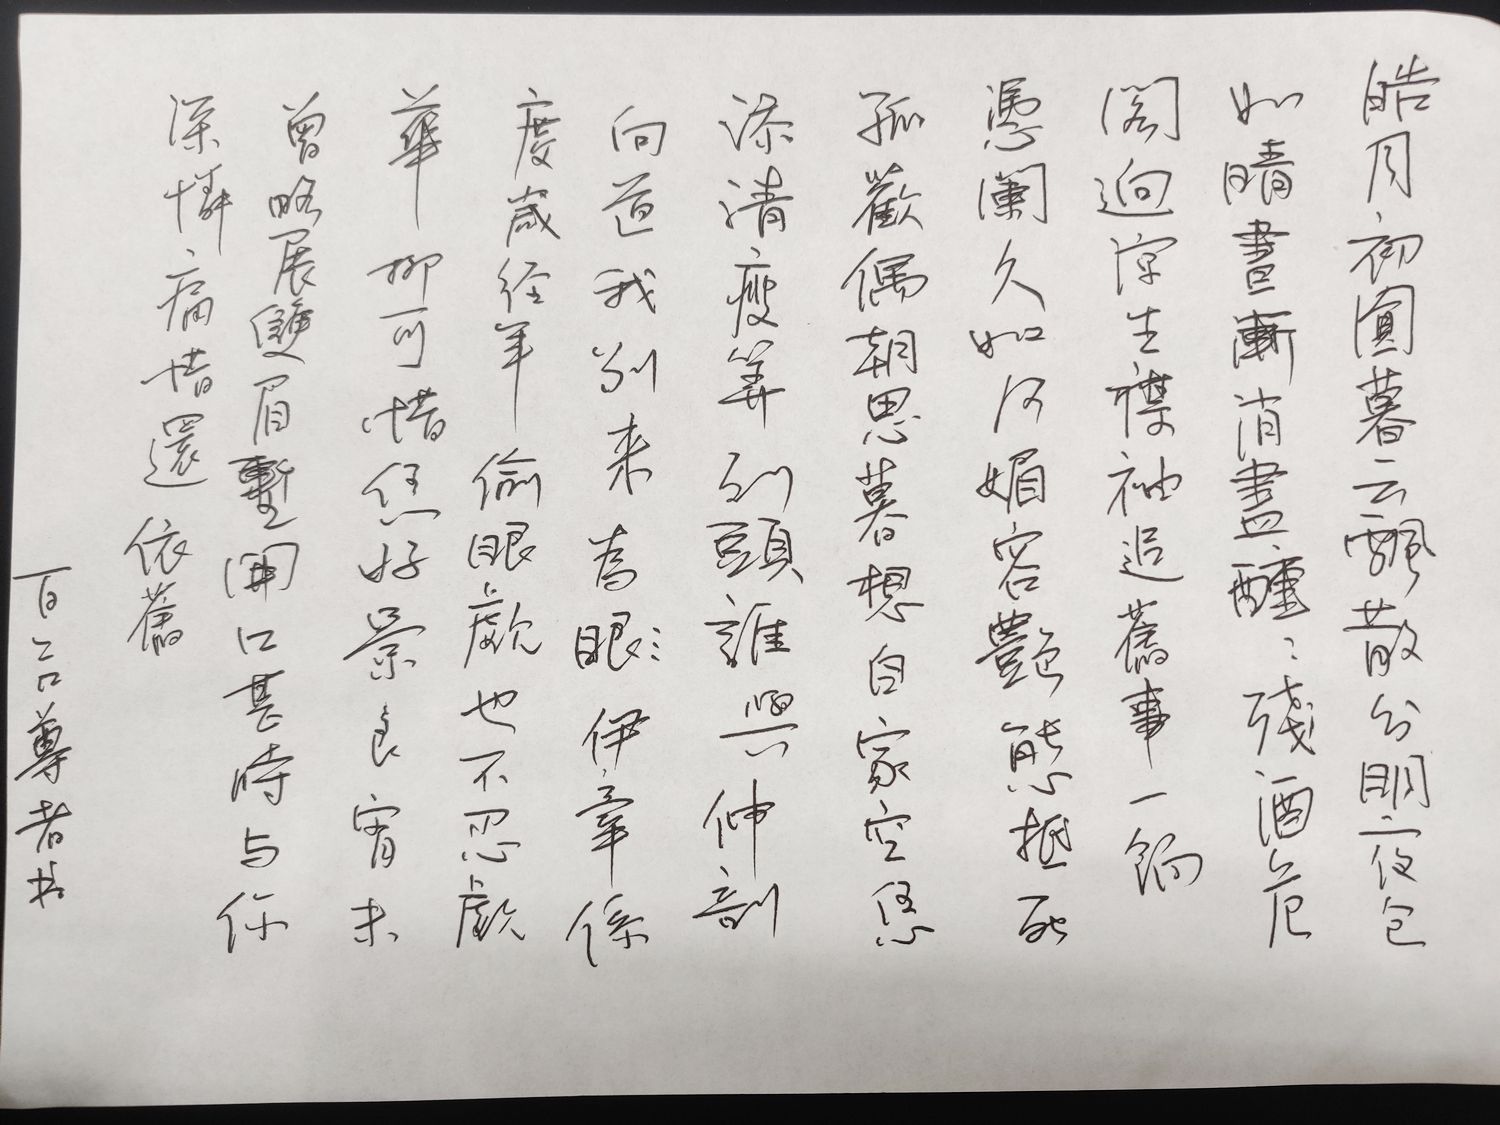 皓月初圓暮云飄散分明夜色
如晴晝漸消盡醺〻殘酒危
閣迥涼生襟袖追舊事一餉
憑闌久如何媚容豔態抵死
孤歡偶朝思暮想自家空恁
添清瘦算到頭誰與伸剖
向道我別来為眼伊牽係
度歲經年偷眼覷也不忍覷
華柳可惜恁好景良宵未
曾略展雙眉暫開口甚時与你
深憐痛惜還依舊
百尊者书